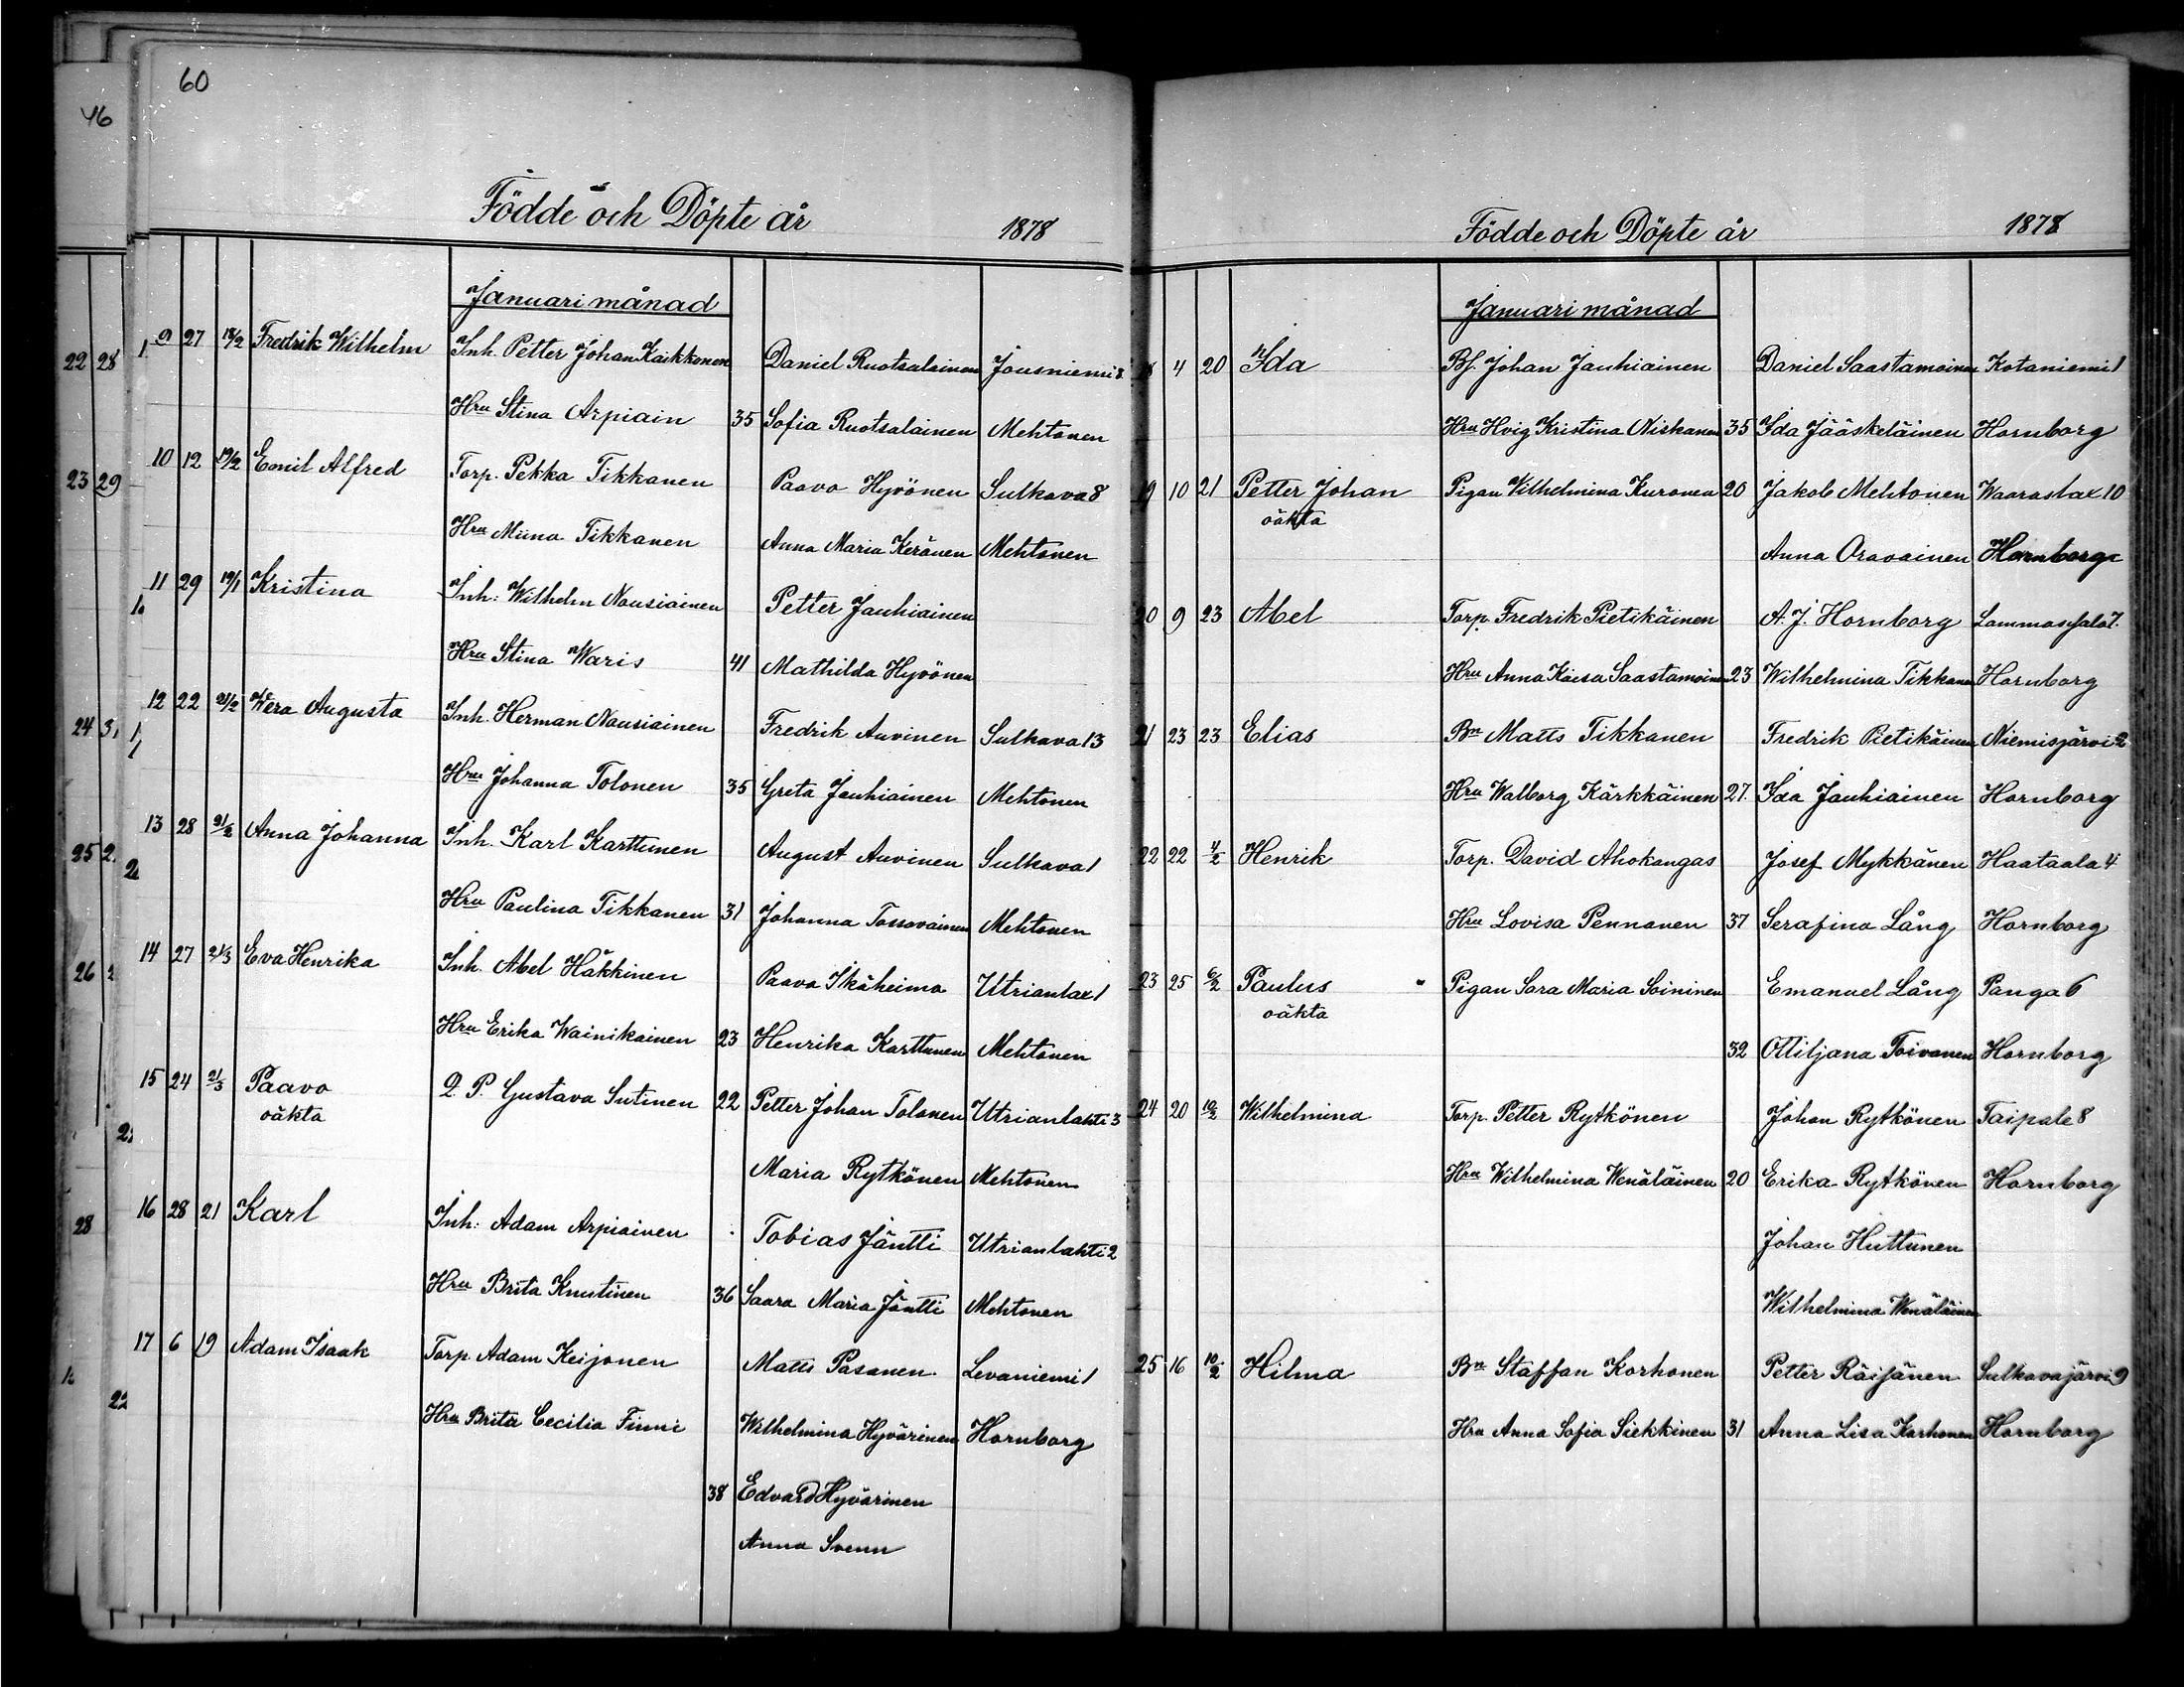 60
46
Födde och Döpte år 1878
Januari månad
9 27 18/2 Fredrik Wilhelm Inh. Petter Johan Kaikkonen Daniel Ruotsalainen Jousniemi 8
Hru Stina Arpiain 35 Sofia Ruotsalainen Mehtonen
10 12 19/2 Emil Alfred Torp. Pekka Tikkanen Paavo Hyvönen Sulkava 8
Hru Miina Tikkanen Anna Maria Keränen Mehtonen
11 29 19/1 Kristina Inh: Wilhelm Nousiainen Petter Jauhiainen
Hru Stina Waris 41 Mathilda Hyvönen
12 22 21/2 Wera Augusta Inh. Herman Nousiainen Fredrik Auvinen Sulkava 13
Hru Johanna Tolonen 35 Greta Jauhiainen Mehtonen
13 28 21/2 Anna Johanna Inh. Karl Karttunen August Auvinen Sulkava 1
Hru Paulina Tikkanen 31 Johanna Tossavainen Mehtonen
14 27 21/3 Eva Henrika Inh. Abel Häkkinen Paavo Ikäheimo Utrianlax 1
Hru Erika Wainikainen 23 Henrika Karttunen Mehtonen
15 24 21/3 Paavo Q. P. Gustava Sutinen 22 Petter Johan Tolonen Utrianlahti 3
oäkta
Maria Rytkönen Mehtonen
16 28 21 Karl Inh: Adam Arpiainen Tobias Jäntti Utrianlahti 2
Hru Brita Knutinen 36 Saara Maria Jäntti Mehtonen
17 6 19 Adam Isaak Torp. Adam Keijonen Matts Pasanen Levaniemi 1
Hru Brita Cecilia Finni Wilhelmina Hyvärinen Hornborg
38 Edvard Hyvärinen
Anna
Födde och Döpte år 1878
Januari månad
18 4 20 Ida Bf. Johan Jauhiainen Daniel Saastamoinen Kotaniemi 1
Hru Hvig Kristina Niskanen 35 Ida Jääskeläinen Hornborg
19 10 21 Petter Johan Pigan Wilhelmina Kuronen 20 Jakob Mehtonen Waaraslax 10
oäkta
Anna Oravainen Hornborg
20 9 23 Abel Torp. Fredrik Pietikäinen A. J. Hornborg Lammassalo 7.
Hru Anna Kaisa Saastamoinen 23 Wilhelmina Tikkanen Hornborg
21 23 23 Elias Bn Matts Tikkanen Fredrik Pietikäinen Niemisjärvi 2
Hru Walborg Kärkkäinen 27. Ida Jauhiainen Hornborg
22 22 4/2 Henrik Torp. David Ahokangas Josef Mykkänen Haataala 4
Hru Lovisa Pennanen 37 Serafina Lång Hornborg
23 25 6/2 Paulus Pigan Sara Maria Soininen Emanuel Lång Panga 6
oäkta
32 Ottiljana Toivanen Hornborg
24 20 10/2 Wilhelmina Torp. Petter Rytkönen Johan Rytkönen Taipale 8
Hru Wilhelmina Wenäläinen 20 Erika Rytkönen Hornborg
Johan Huttunen
Wilhelmina Wenäläinen
25 16 10/2 Hilma Bn Staffan Korhonen Petter Räisänen Sulkavajärvi 9
Hru Anna Sofia Siekkinen 31 Anna Lisa Korhonen Hornborg